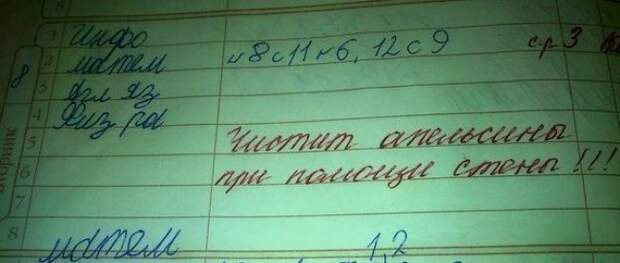 1 Инфо
2 матем н 8 с 11 н 6, 12 с 9 ср 3
3 Яз
4 Физ ра
5 Чистит апельсины
6 при помощи стены!!!
7
8
8
вторник
матем 1,2